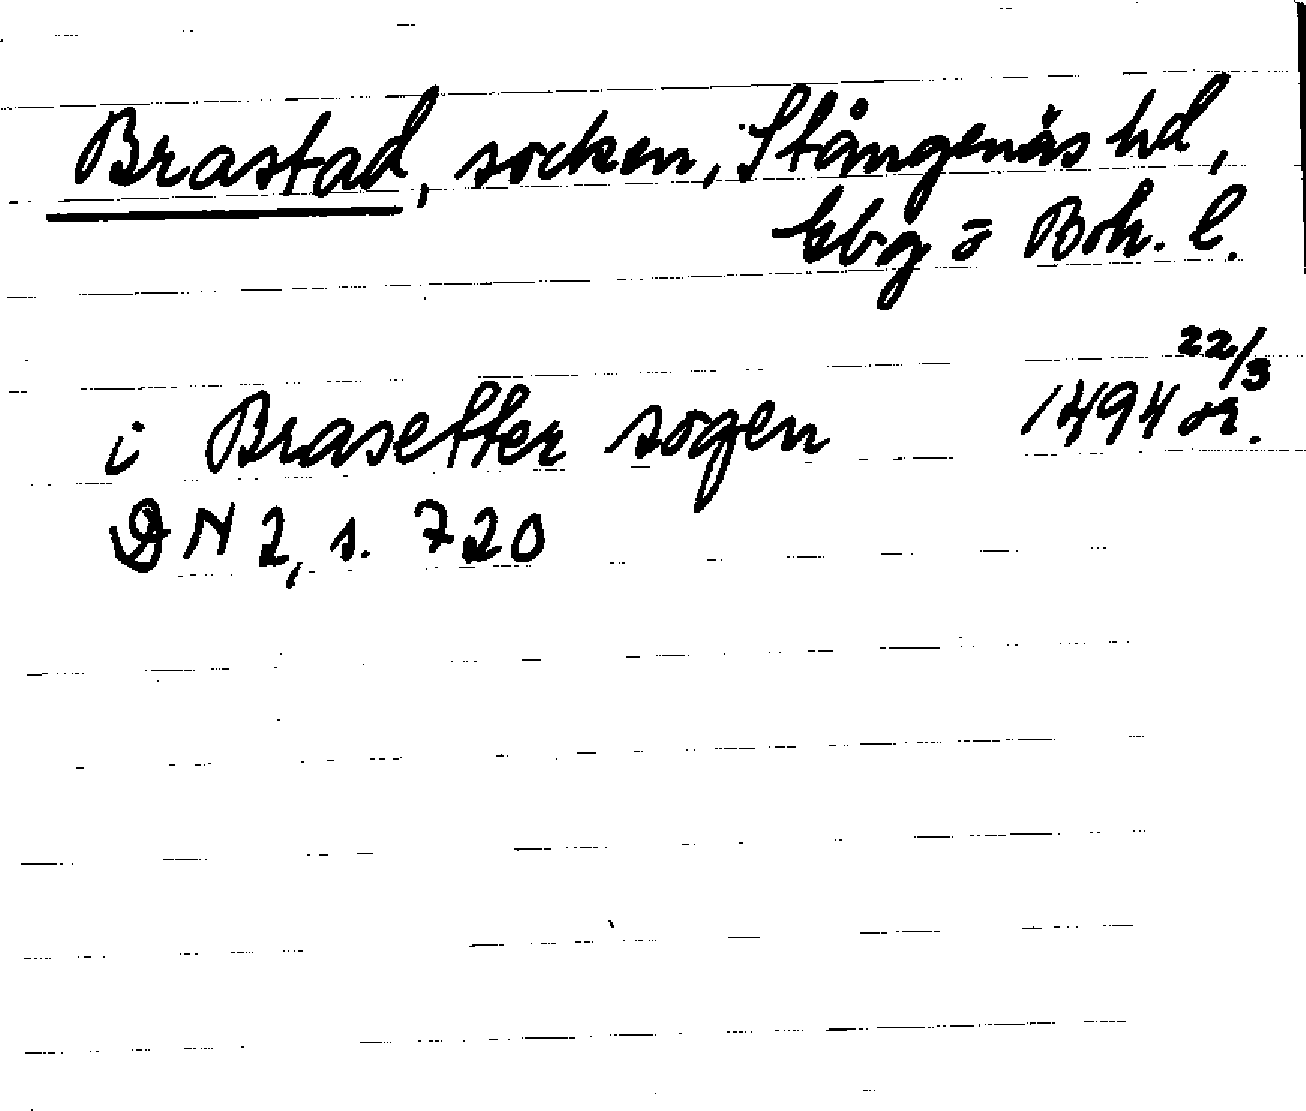 Brastad, socken, Stångenäs hd,
Gbg o Boh. l.
i Brasetter sogen 1494 22/3 or.
DN 2, s. 720